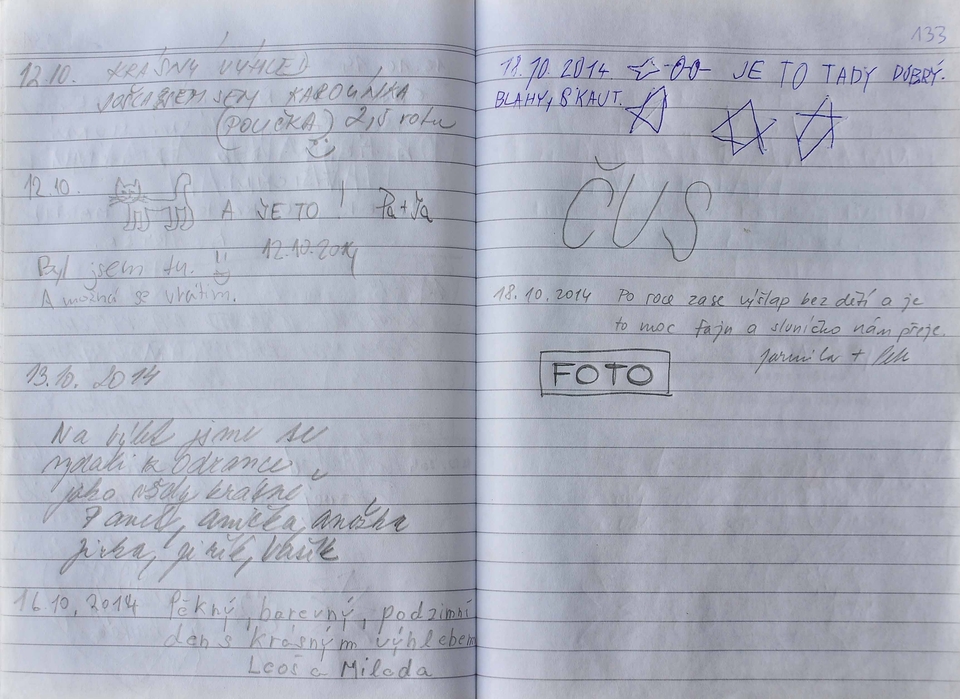 12.10. KRÁSNÝ VÝHLED
JSEM KAROLÍNKA
(POLIČKA) 2,5 roku
12.10.
A JE TO! Pa + Ja
Byl jsem tu. 12.10.2014
A možná se vrátím.
13.10. 2014
Na výlet jsme se
vydali k Odrance
jako vždy krásné
anička, anežka
jirka, jiřík, Vašík
16.10.2014 Pěkný, barevný, podzimní
den s krásným výhlebem
Leoš a Milada
133
18.10.2014 JE TO TADY DOBRÝ.
BLAHY, SKAUT.
ČUS
18.10.2014 Po roce zase výšlap bez dětí a je
to moc fajn a sluníčko nám přeje.
Jarmila + Petr
FOTO